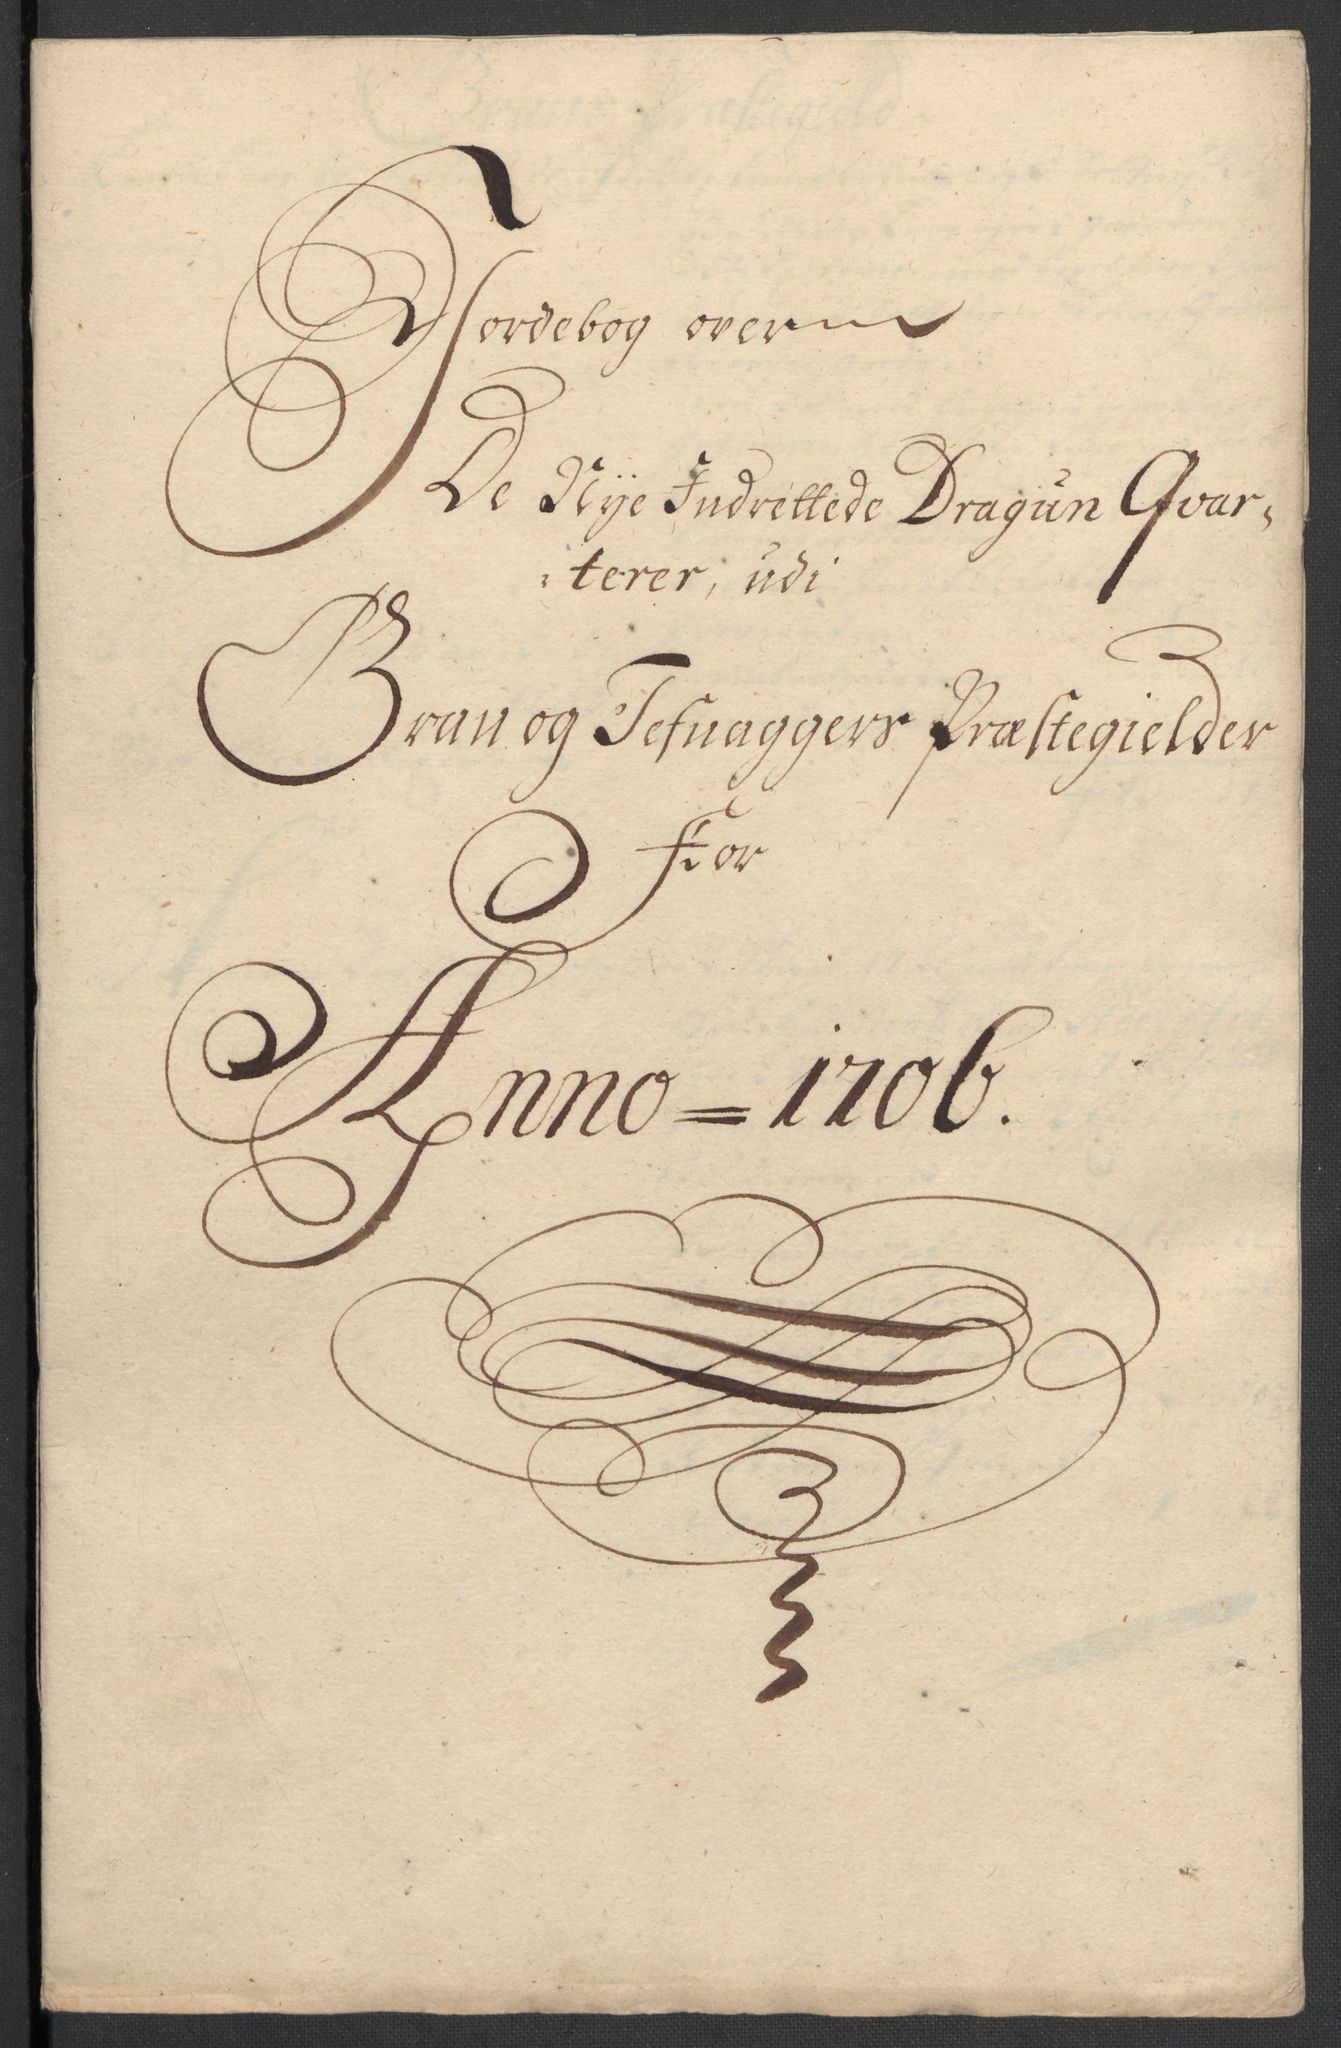 Jordebog over
De Nÿe Indrettede Dragun Qvar,,
,,terer, udi
Gran og Jefnaggers Præstegielder
For
Anno = 1706.